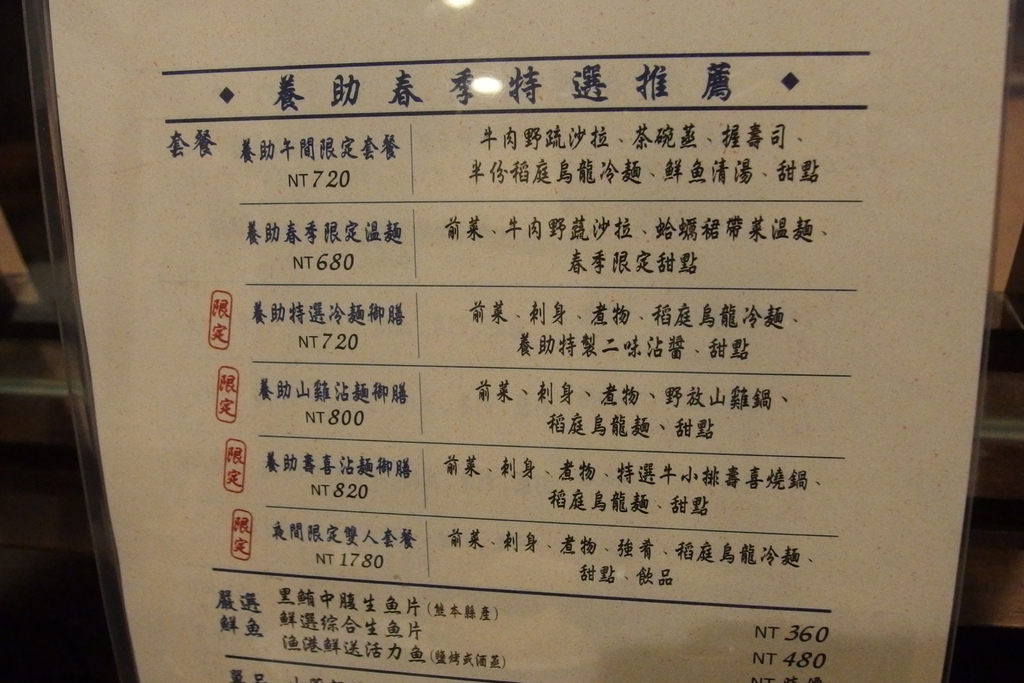 ◆ 養助春季特選推薦 ◆
套餐
養助午間限定套餐
NT 720
牛肉野疏沙拉、茶碗蒸、握壽司、
半份稻庭烏龍冷麵、鮮魚清湯、甜點
養助春季限定溫麵
NT 680
前菜、牛肉野蔬沙拉、蛤蠣裙帶菜溫麵、
春季限定甜點
限定
養助特選冷麵御膳
NT 720
前菜、刺身、煮物、稻庭烏龍冷麵、
養助特製二味沾醬、甜點
限定
養助山雞沾麵御膳
NT 800
前菜、刺身、煮物、野放山雞鍋、
稻庭烏龍麵、甜點
限定
養助壽喜沾麵御膳
NT 820
前菜、刺身、煮物、特選牛小排壽喜燒鍋、
稻庭烏龍麵、甜點
限定
夜間限定雙人套餐
NT 1780
前菜、刺身、煮物、強肴、稻庭烏龍冷麵、
甜點、飲品
嚴選
鮮魚
黑鮪中腹生魚片(熊本縣產)
NT 360
鮮選綜合生魚片
NT 480
漁港鮮送活力魚(鹽烤或酒蒸)
NT